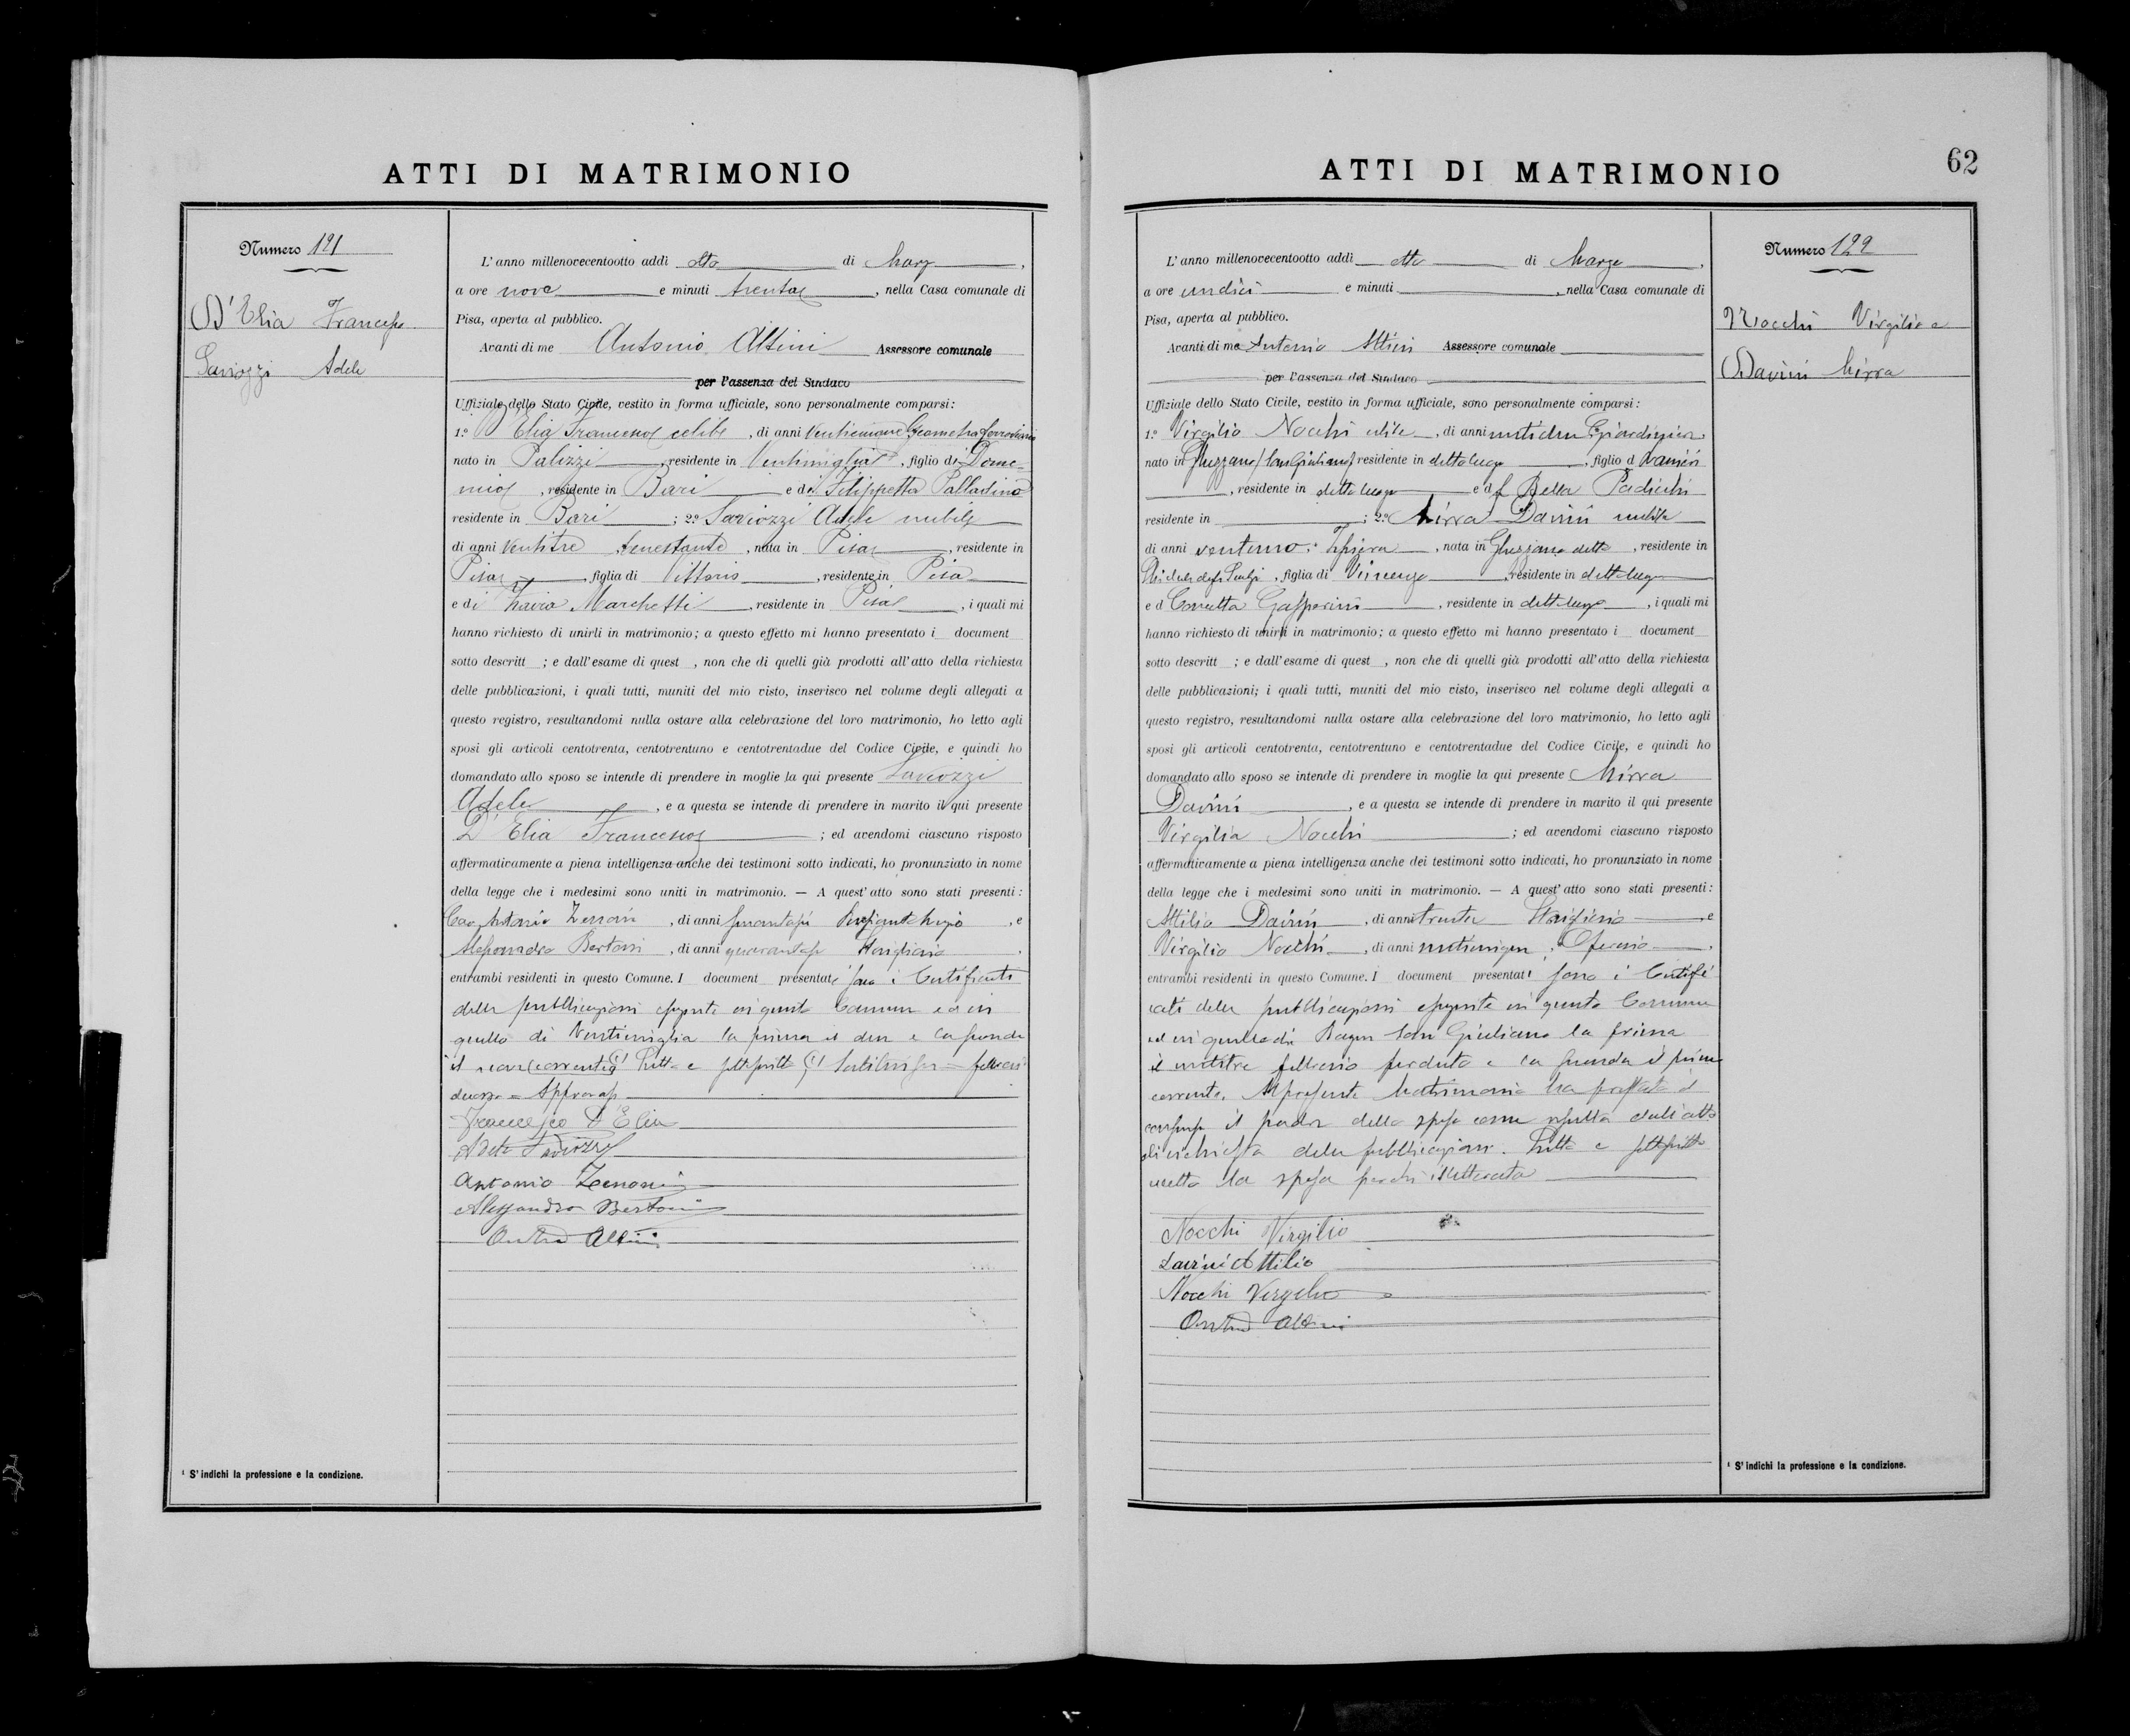 ATTI DI MATRIMONIO
Numero 121
D'Elia Francesco
Saviozzi Adele
L'anno millenovecentootto addì otto di Marzo,
a ore nove e minuti trenta, nella Casa comunale di
Pisa, aperta al pubblico.
Avanti di me Antonio Altini Assessore comunale
per l'assenza del Sindaco
Uffiziale dello Stato Civile, vestito in forma ufficiale, sono personalmente comparsi:
1.º D'Elia Francesco celibe, di anni ventinove Geometra ferroviario
nato in Palizzi, residente in Ventimiglia, figlio di Dome-
nico, residente in Bari e di Filippetta Palladino
residente in Bari; 2.º Saviozzi Adele nubile
di anni ventitre benestante, nata in Pisa, residente in
Pisa, figlia di Vittorio, residente in Pisa
e di Marchetti, residente in Pisa, i quali mi
hanno richiesto di unirli in matrimonio; a questo effetto mi hanno presentato i document
sotto descritt ; e dall'esame di quest , non che di quelli già prodotti all'atto della richiesta
delle pubblicazioni, i quali tutti, muniti del mio visto, inserisco nel volume degli allegati a
questo registro, resultandomi nulla ostare alla celebrazione del loro matrimonio, ho letto agli
sposi gli articoli centotrenta, centotrentuno e centotrentadue del Codice Civile, e quindi ho
domandato allo sposo se intende di prendere in moglie la qui presente Saviozzi
Adele, e a questa se intende di prendere in marito il qui presente
D'Elia Francesco; ed avendomi ciascuno risposto
affermativamente a piena intelligenza anche dei testimoni sotto indicati, ho pronunziato in nome
della legge che i medesimi sono uniti in matrimonio. — A quest'atto sono stati presenti:
Cav. Antonio Zenoni, di anni, e
Alessandro Bertoni, di anni
entrambi residenti in questo Comune. I document presentati sono i Certificati
delle pubblicazioni eseguite in questo Comune ed in
quello di Ventimiglia la prima il due e la seconda
il nove corrente (1) Letto e sottoscritto (1)
Approvasi
Francesco D'Elia
Adele Saviozzi
Antonio Zenoni
Alessandro Bertoni
Antonio Altini
¹ S'indichi la professione e la condizione.
ATTI DI MATRIMONIO
62
Numero 122
Nocchi Virgilio e
Davini Mirra
L'anno millenovecentootto addì otto di Marzo,
a ore undici e minuti, nella Casa comunale di
Pisa, aperta al pubblico.
Avanti di me Antonio Altini Assessore comunale
per l'assenza del Sindaco
Uffiziale dello Stato Civile, vestito in forma ufficiale, sono personalmente comparsi:
1.º Virgilio Nocchi celibe, di anni ventidue Giardiniere
nato in Ghezzano (San Giuliano) residente in detto luogo, figlio d Ranieri
, residente in detto luogo e d Bella Padicchi
residente in ; 2.º Mirra Davini nubile
di anni ventuno, nata in Ghezzano detto, residente in
S. Michele degli Scalzi, figlia di Vincenzo, residente in detto luogo
e d Concetta Gasperini, residente in detto luogo, i quali mi
hanno richiesto di unirli in matrimonio; a questo effetto mi hanno presentato i document
sotto descritt ; e dall'esame di quest , non che di quelli già prodotti all'atto della richiesta
delle pubblicazioni; i quali tutti, muniti del mio visto, inserisco nel volume degli allegati a
questo registro, resultandomi nulla ostare alla celebrazione del loro matrimonio, ho letto agli
sposi gli articoli centotrenta, centotrentuno e centotrentadue del Codice Civile, e quindi ho
domandato allo sposo se intende di prendere in moglie la qui presente Mirra
Davini, e a questa se intende di prendere in marito il qui presente
Virgilio Nocchi; ed avendomi ciascuno risposto
affermativamente a piena intelligenza anche dei testimoni sotto indicati, ho pronunziato in nome
della legge che i medesimi sono uniti in matrimonio. — A quest'atto sono stati presenti:
Attilio Davini, di anni trenta, e
Virgilio Nocchi, di anni, Operaio
entrambi residenti in questo Comune. I document presentati sono i Certifi-
cati delle pubblicazioni eseguite in questo Comune
ed in quello di Bagni San Giuliano la prima
il ventitre febbraio perduto e la seconda il primo
corrente. Al presente Matrimonio ha prestato il
consenso il padre della sposa come resulta dall'atto
di richiesta delle pubblicazioni. Letto e sottoscritto
meno la sposa perché illetterata
Nocchi Virgilio
Davini Attilio
Nocchi Virgilio
Antonio Altini
¹ S'indichi la professione e la condizione.